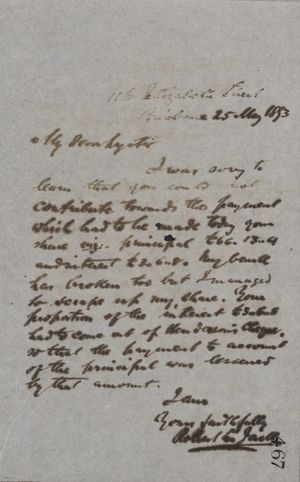 116 Elizabeth Street
Brisbane 25 May 1893
My dear
I was sorry to
learn that you could not
contribute towards the payment
which had to be made today your
share viz:- principal £66.13.4
and interest £3.6.8. My bank
has broken too but I managed
to scrape up my share. Your
proportion of the interest £3.6.8
had to come out of Henderson's cheque,
so that the payment to account
of the principal was lessened
by that amount.
I am
Yours faithfully
Robert L. Jack
467